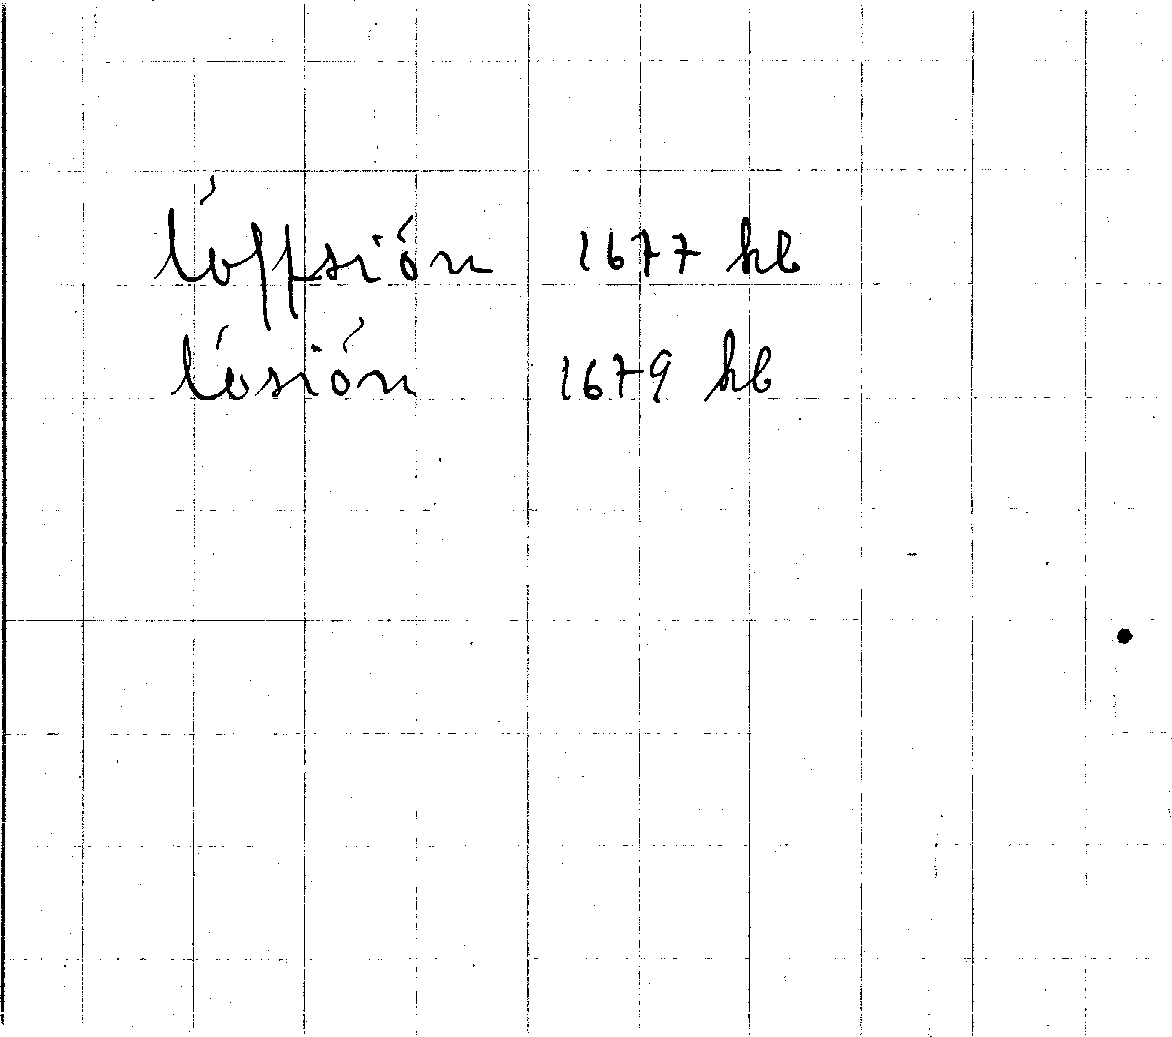 lóffsión 1677 hb
lósión 1679 hb